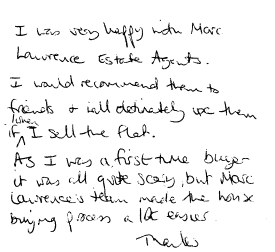 I was very happy with Marc
Lawrence Estate Agents.
I would recommend them to
friends & will definately use them
if/when I sell the flat.
As I was a first time buyer
it was all quite scary, but Marc
Lawrence's team made the house
buying process a lot easier.
Thanks